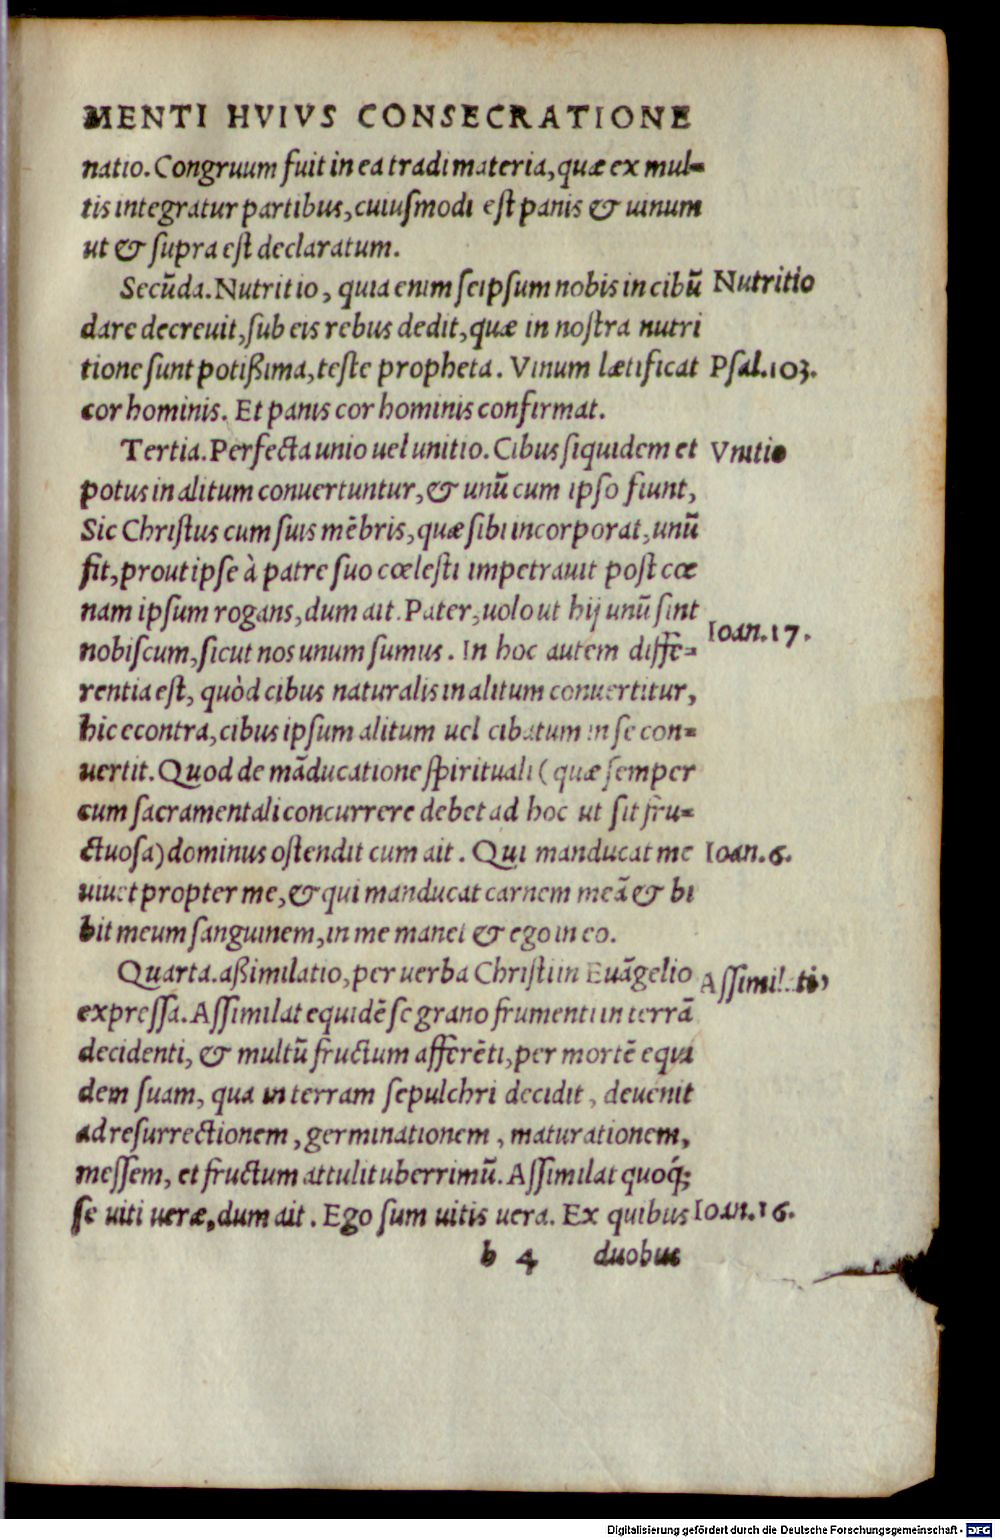 MENTI HVIVS CONSECRATIONE
natio. Congruum fuit in ea tradi materia, quæ ex mul-
tis integratur partibus, cuiusmodi est panis & uinum
ut & supra est declaratum.
Secūda. Nutritio, quia enim seipsum nobis in cibū Nutritio
dare decreuit, sub eis rebus dedit, quæ in nostra nutri
tione sunt potißima, teste propheta. Vinum lætificat Psal.103.
cor hominis. Et panis cor hominis confirmat.
Tertia. Perfecta unio uel unitio. Cibus siquidem et Vnitio
potus in alitum conuertuntur, & unū cum ipso fiunt,
Sic Christus cum suis mēbris, quæ sibi incorporat, unū
fit, prout ipse à patre suo cœlesti impetrauit post cœ
nam ipsum rogans, dum ait. Pater, uolo ut hij unū sint
Ioan.17.
nobiscum, sicut nos unum sumus. In hoc autem diffe-
rentia est, quòd cibus naturalis in alitum conuertitur,
hic econtra, cibus ipsum alitum uel cibatum in se con-
uertit. Quod de māducatione spirituali (quæ semper
cum sacramentali concurrere debet ad hoc ut sit fru-
ctuosa) dominus ostendit cum ait. Qui manducat me Ioan.6.
uiuet propter me, & qui manducat carnem meā & bi
bit meum sanguinem, in me manet & ego in eo.
Quarta. aßimilatio, per uerba Christi in Euāgelio Assimilatio
expressa. Assimilat equidē se grano frumenti in terrā
decidenti, & multū fructum afferēti, per mortē equi
dem suam, qua in terram sepulchri decidit, deuenit
ad resurrectionem, germinationem, maturationem,
messem, et fructum attulit uberrimū. Assimilat quoq́;
se uiti ueræ, dum ait. Ego sum uitis uera. Ex quibus Ioan.16.
b 4 duobus
Digitalisierung gefördert durch die Deutsche Forschungsgemeinschaft - DFG